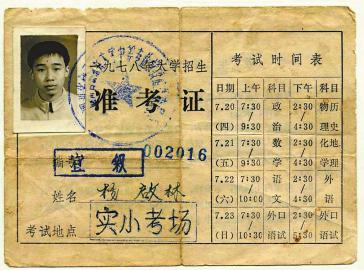 一九七八年大学招生
准考证
编号 宜 级 002016
姓名 杨启林
考试地点 实小考场
考试时间表
日期 上午 科目 下午 科目
7.20 7:30 政 2:30 物历
(四) 9:30 治 4:30 理史
7.21 7:30 数 2:30 化地
(五) 9:30 学 4:30 学理
7.22 7:30 语 2:30 外
(六) 10:00 文 4:30 语
7.23 7:30 外口 2:30 外口
(日) 10:30 语试 5:30 语试